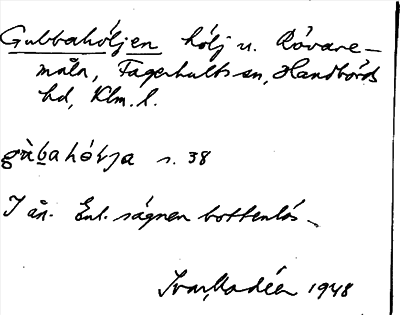 Gubbahöljen hölj n. Rövare-
måla, Fagerhults sn, Handbörds
hd, Klm. l.
gùbahöʎja s. 38
I ån. Enl. sägnen bottenlös.
Ivar Modéer 1948